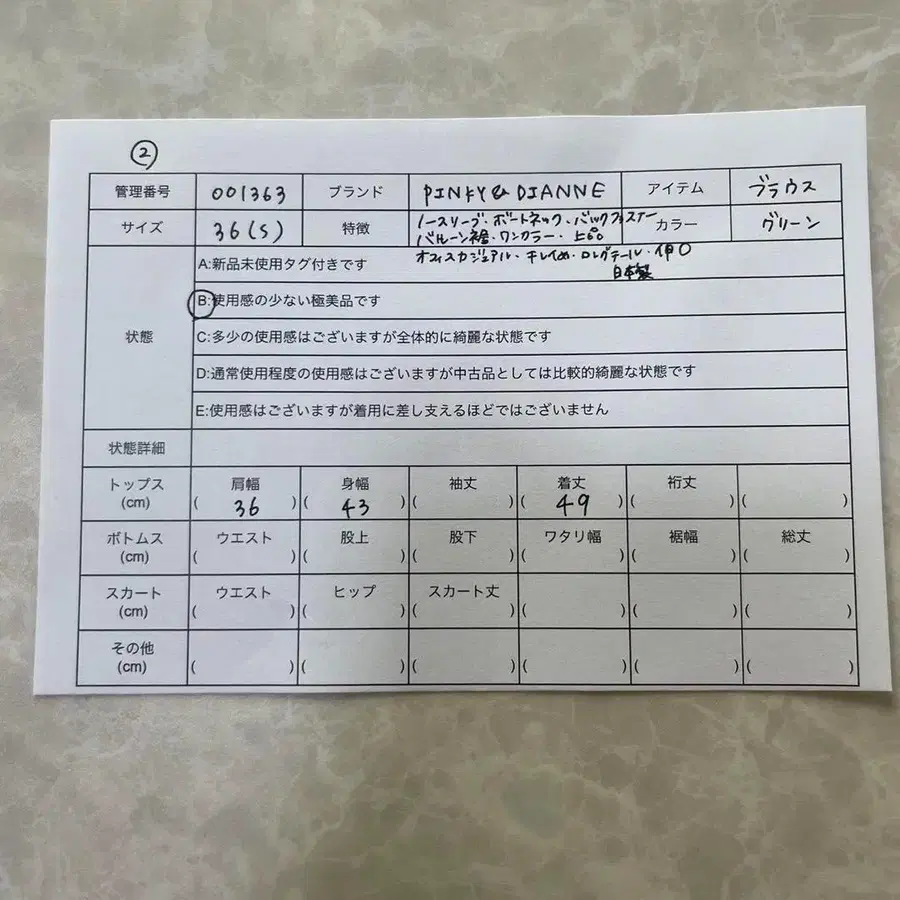 ②
管理番号 001363 ブランド PINKY & DIANNE アイテム ブラウス
サイズ 36(S) 特徴 ノースリーブ・ボートネック・バックファスナー カラー グリーン
バルーン裾・ワンカラー・上品
オフィスカジュアル・キレイめ・ロングテール・伊〇
日本製
状態
A:新品未使用タグ付きです
B:使用感の少ない極美品です
C:多少の使用感はございますが全体的に綺麗な状態です
D:通常使用程度の使用感はございますが中古品としては比較的綺麗な状態です
E:使用感はございますが着用に差し支えるほどではございません
状態詳細
トップス 肩幅 身幅 袖丈 着丈 裄丈
(cm) ( 36 ) ( 43 ) ( ) ( 49 ) ( ) ( )
ボトムス ウエスト 股上 股下 ワタリ幅 裾幅 総丈
(cm) ( ) ( ) ( ) ( ) ( ) ( )
スカート ウエスト ヒップ スカート丈
(cm) ( ) ( ) ( ) ( ) ( ) ( )
その他
(cm) ( ) ( ) ( ) ( ) ( ) ( )